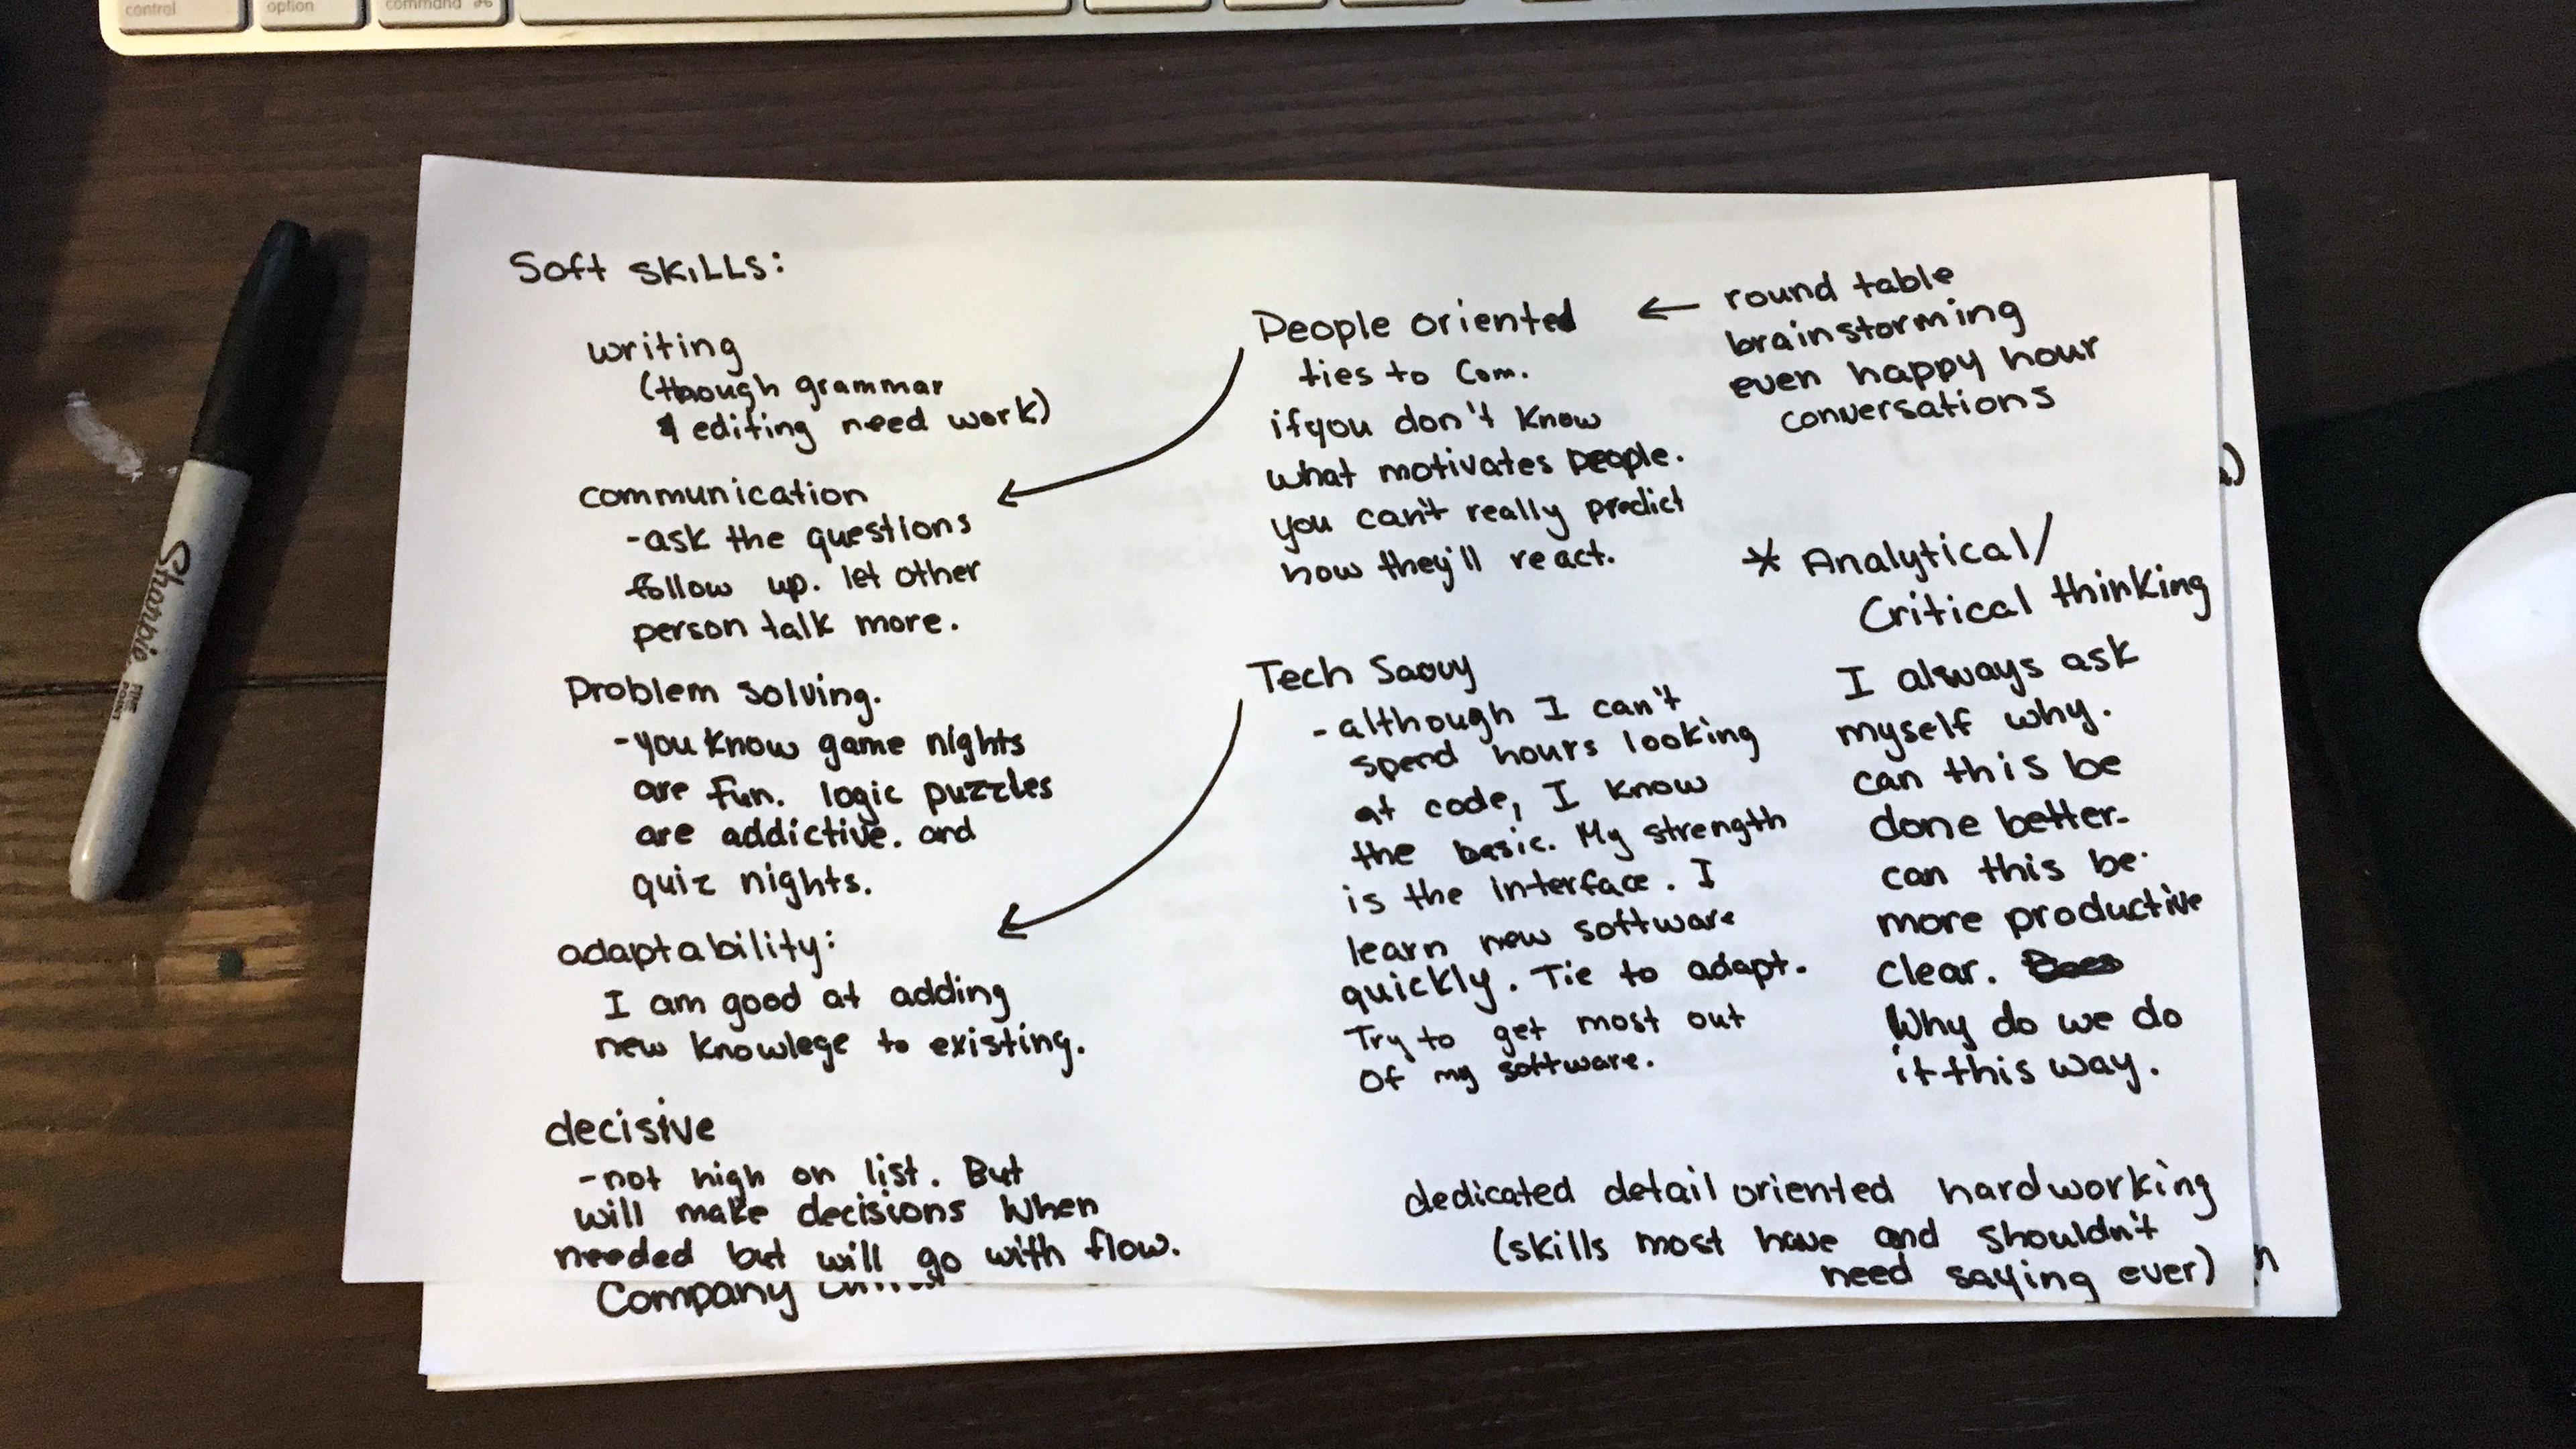 control
option
command ⌘
Soft SKILLS:
writing
(though grammar
& editing need work)
communication
-ask the questions
follow up. let other
person talk more.
Problem solving.
-you know game nights
are fun. logic puzzles
are addictive. and
quiz nights.
adaptability:
I am good at adding
new knowlege to existing.
decisive
-not high on list. But
will make decisions when
needed but will go with flow.
People oriented
ties to Com.
if you don't know
what motivates people.
you can't really predict
how they'll react.
← round table
brainstorming
even happy hour
conversations
Tech Savvy
- although I can't
spend hours looking
at code, I know
the basic. My strength
is the interface. I
learn new software
quickly. Tie to adapt.
Try to get most out
of my software.
* Analytical/
Critical thinking
I always ask
myself why.
can this be
done better-
can this be
more productive
clear.
Why do we do
it this way.
dedicated detail oriented hardworking
(skills most have and shouldn't
need saying ever)
Company
Sharpie
FINE
POINT